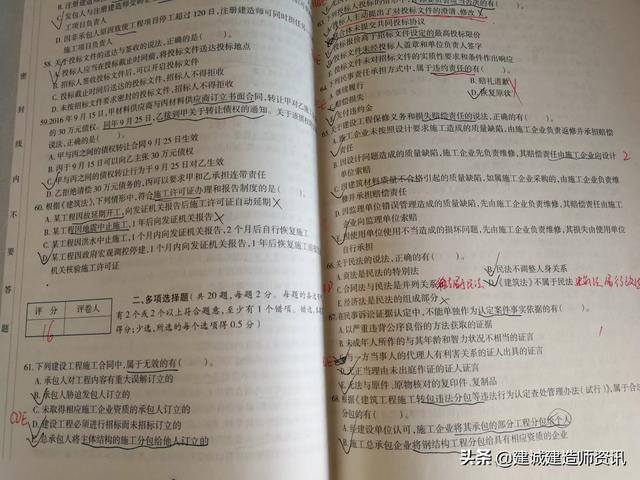 密 封 线 内 不 要 答 题
C. 发包人与注册建造师受聘
工项目负责人
D. 因非承包人原因致使工程项目停工超过120日,注册建造师可同时担任
施工项目负责人
58. 关于投标文件的送达与签收的说法,正确的是( )。
A. 投标人应当在投标截止时间前,将投标文件送达投标地点
B. 招标人签收投标文件后,可以开启投标文件
C. 投标截止时间后送达的投标文件,招标人不得拒收
D. 未按招标文件要求密封的投标文件,招标人不得拒收
59. 2016年9月15日,甲材料供应商与丙材料供应商订立书面合同,转让甲对乙施工
的30万元债权。同年9月25日,乙接到甲关于转让债权的通知。关于该债权
说法,正确的是( )。
A. 甲与丙之间的债权转让合同9月25日生效
B. 丙于9月15日可以向乙主张30万元债权
C. 甲与丙之间的债权转让行为于9月25日对乙生效
D. 乙拒绝清偿30万元债务的,丙可以要求甲和乙承担连带责任
60. 根据《建筑法》,下列情形中,符合施工许可证办理和报告制度的是( )。
A. 某工程因故延期开工,向发证机关报告后施工许可证自动延期
B. 某工程因地震中止施工,1年后向发证机关报告
C. 某工程因洪水中止施工,1个月内向发证机关报告,2个月后自行恢复施工
D. 某工程因政府宏观调控停建,1个月内向发证机关报告,1年后恢复施工
机关核验施工许可证
评 分 评卷人
16
二、多项选择题(共20题,每题2分。每题的备选
有2个或2个以上符合题意,至少有1个错项。错选,
得分;少选,所选的每个选项得0.5分)
61. 下列建设工程施工合同中,属于无效的有( )。
A. 承包人对工程内容有重大误解订立的
B. 承包人胁迫发包人订立的
C. 未取得相应施工企业资质的承包人订立的
CDE
D. 建设工程必须进行招标而未招标订立的
E. 总承包人将主体结构的施工分包给他人订立的
投标人主动提出了对投标文件的澄清、修改
投标人提交共同投标协议
报价高于招标文件设定的最高投标限价
投标文件未经投标人盖章和单位负责人签字
投标文件未对招标文件的实质性要求和条件作出响应
64. 下列民事责任承担方式中,属于违约责任的有( )
A. 继续履行
B. 赔礼道歉
C. 赔偿损失
D. 恢复原状
E. 支付违约金
65. 关于建设工程保修义务和损失赔偿责任的说法,正确的有( )。
A. 施工企业未按照设计要求施工造成的质量缺陷,由施工企业负责返修并承担赔偿
责任
B. 因设计问题造成的质量缺陷,施工企业先负责维修,其赔偿责任由施工企业向设计
单位索赔
2
C. 因建筑材料质量不合格引起的质量缺陷,如属施工企业采购的,由施工企业负责
维修并承担赔偿责任
D. 因监理单位错误管理造成的质量缺陷,先由施工企业负责维修,其赔偿责任由施工
企业向监理单位索赔
E. 因使用单位使用不当造成的损坏问题,先由施工企业负责维修,其损失由使用单位
自行承担
66. 关于民法的说法,正确的有( )。
A. 商法是民法的特别法
B. 民法不调整人身关系
C. 合同法与民法是并列关系
D. 《建筑法》不属于民法
E. 经济法是民法的组成部分
67. 在民事诉讼证据认定中,不能单独作为认定案件事实依据的有( )。
A. 以严重违背公序良俗的方法获取的证据
B. 未成年人所作的与其年龄和智力状况不相当的证言
C. 与一方当事人的代理人有利害关系的证人出具的证言
D. 无正当理由未出庭作证的证人证言
E. 无法与原件、原物核对的复印件、复制品
1
68. 根据《建筑工程施工转包违法分包等违法行为认定查处管理办法(试行)》,属于合法
分包的有( )。
A. 经建设单位认可,施工企业将其承包的部分工程分包给个人
B. 施工总承包企业将钢结构工程分包给具有相应资质的企业
头条 @建诚建造师资讯